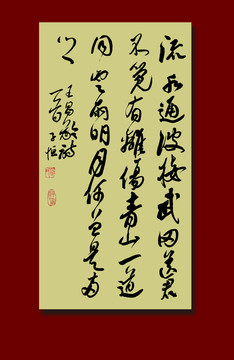 流水通波接武岡送君
不覺有離傷青山一道
同雲雨明月何曾是兩
鄉
王昌齡詩
一首子恒